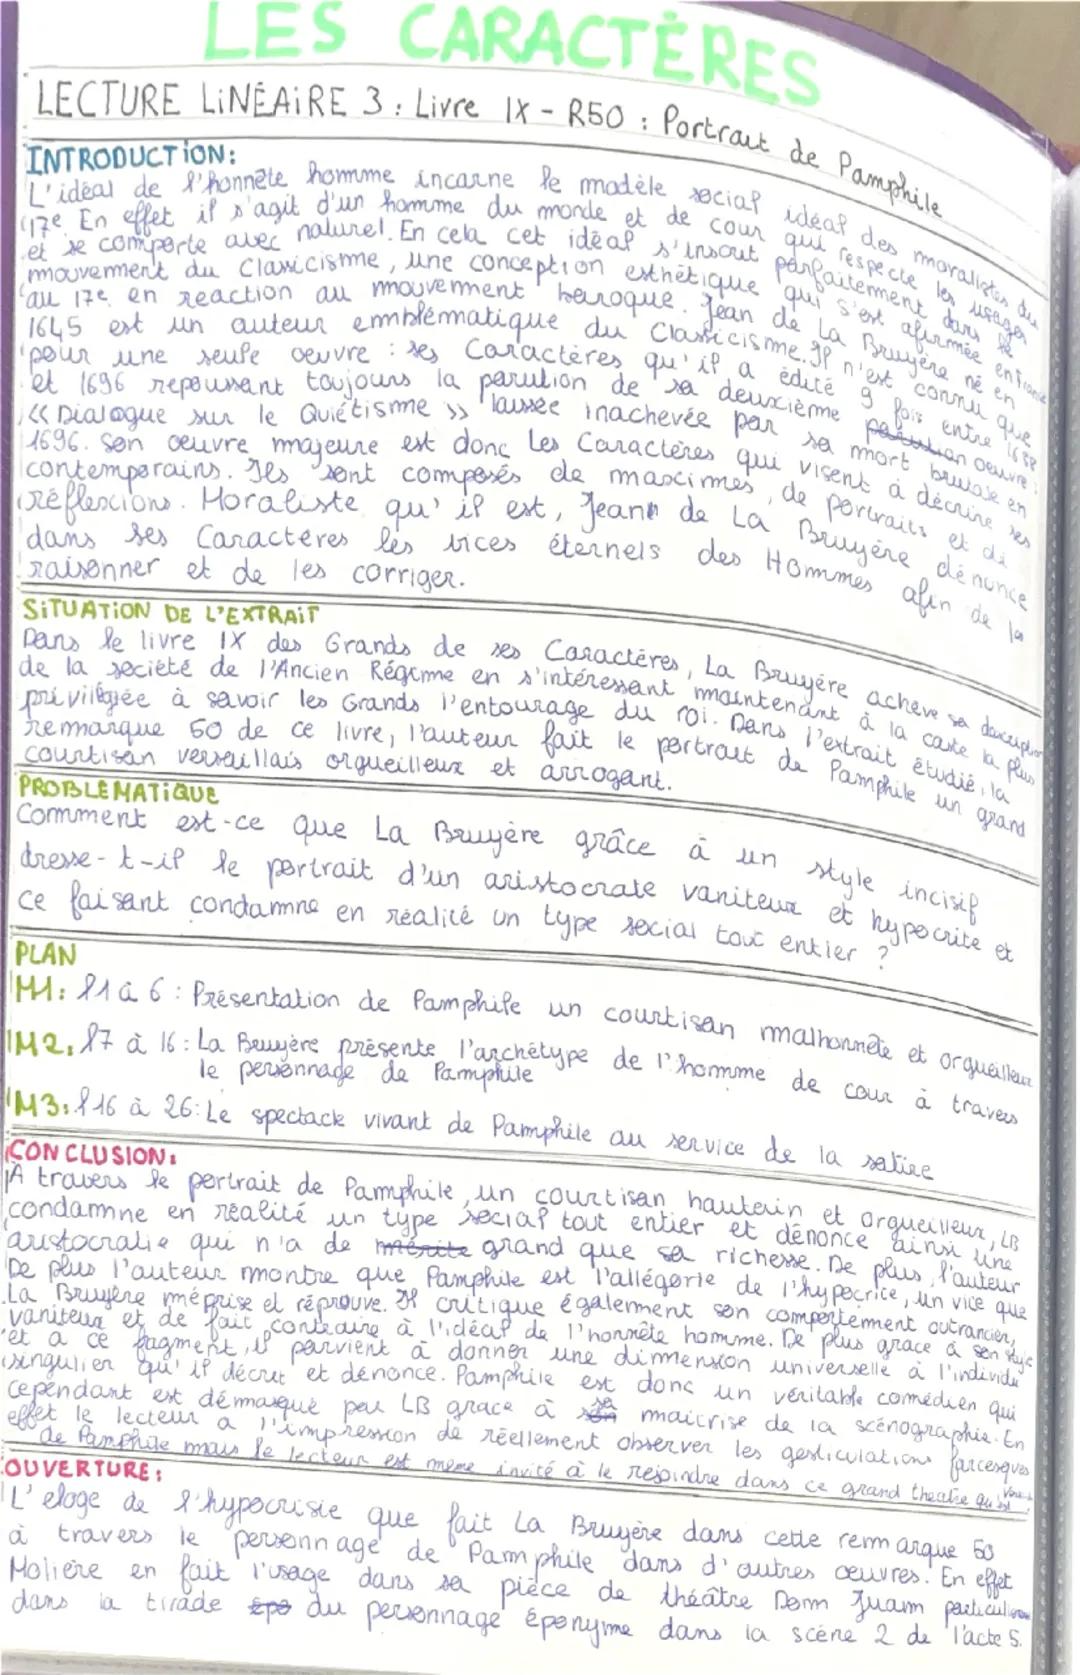 LES CARACTÈRES
LECTURE LINÉAIRE 3 : Livre IX - R50 : Portrait de Pamphile
INTRODUCTION:
L'idéal de l'honnête homme incarne le modèle social idéal des moralistes du
17e. En effet il s'agit d'un homme du monde et de cour qui respecte les usages
et se comporte avec naturel. En cela cet idéal s'inscrit parfaitement dans le
mouvement du Classicisme, une conception esthétique qui s'est afirmée en France
au 17e en reaction au mouvement baroque. Jean de La Bruyère né en
1645 est un auteur emblématique du Classicisme. Il n'est connu que
pour une seule oeuvre : ses Caractères qu'il a édité 9 fois entre 1688
et 1696 repoussant toujours la parution de sa deuxième parution oeuvre :
<< Dialogue sur le Quiétisme >> laissée inachevée par sa mort brutale en
1696. Son oeuvre majeure est donc Les Caractères qui visent à décrire ses
contemporains. Ils sont composés de maximes, de portraits et de
réflexions. Moraliste qu'il est, Jean de La Bruyère dénonce
dans ses Caractères les vices éternels des Hommes afin de les
raisonner et de les corriger.
SITUATION DE L'EXTRAIT
Dans le livre IX des Grands de ses Caractères, La Bruyère achève sa description
de la société de l'Ancien Régime en s'intéressant maintenant à la caste la plus
privilégiée à savoir les Grands l'entourage du roi. Dans l'extrait étudié, la
remarque 50 de ce livre, l'auteur fait le portrait de Pamphile un grand
courtisan versaillais orgueilleux et arrogant.
PROBLEMATIQUE
Comment est-ce que La Bruyère grâce à un style incisif
dresse-t-il le portrait d'un aristocrate vaniteux et hypocrite et
ce faisant condamne en réalité un type social tout entier ?
PLAN
M1: l1 à 6 : Présentation de Pamphile un courtisan malhonnête et orgueilleux
M2: l7 à 16 : La Bruyère présente l'archétype de l'homme de cour à travers
le personnage de Pamphile
M3: l16 à 26: Le spectacle vivant de Pamphile au service de la satire
CONCLUSION:
A travers le portrait de Pamphile, un courtisan hautain et orgueilleux, LB
condamne en réalité un type social tout entier et dénonce ainsi une
aristocratie qui n'a de mérite grand que sa richesse. De plus, l'auteur
De plus l'auteur montre que Pamphile est l'allégorie de l'hypocrite, un vice que
La Bruyère méprise et réprouve. Il critique également son comportement outrancier,
vaniteux et de fait contraire à l'idéal de l'honnête homme. De plus grace à son style
et a ce fragment, il parvient à donner une dimension universelle à l'individu
singulier qu'il décrit et dénonce. Pamphile est donc un véritable comédien qui
cependant est démasqué par LB grace à sa maitrise de la scénographie. En
effet le lecteur a l'impression de réellement observer les gesticulations farcesques
de Pamphile mais le lecteur est même invité à le rejoindre dans ce grand theatre qu'est
OUVERTURE:
L'eloge de l'hypocrisie que fait La Bruyère dans cette remarque 50
à travers le personnage de Pamphile dans d'autres oeuvres. En effet
Molière en fait l'usage dans sa pièce de théâtre Dom Juan
dans la tirade du personnage éponyme dans la scène 2 de l'acte 5.